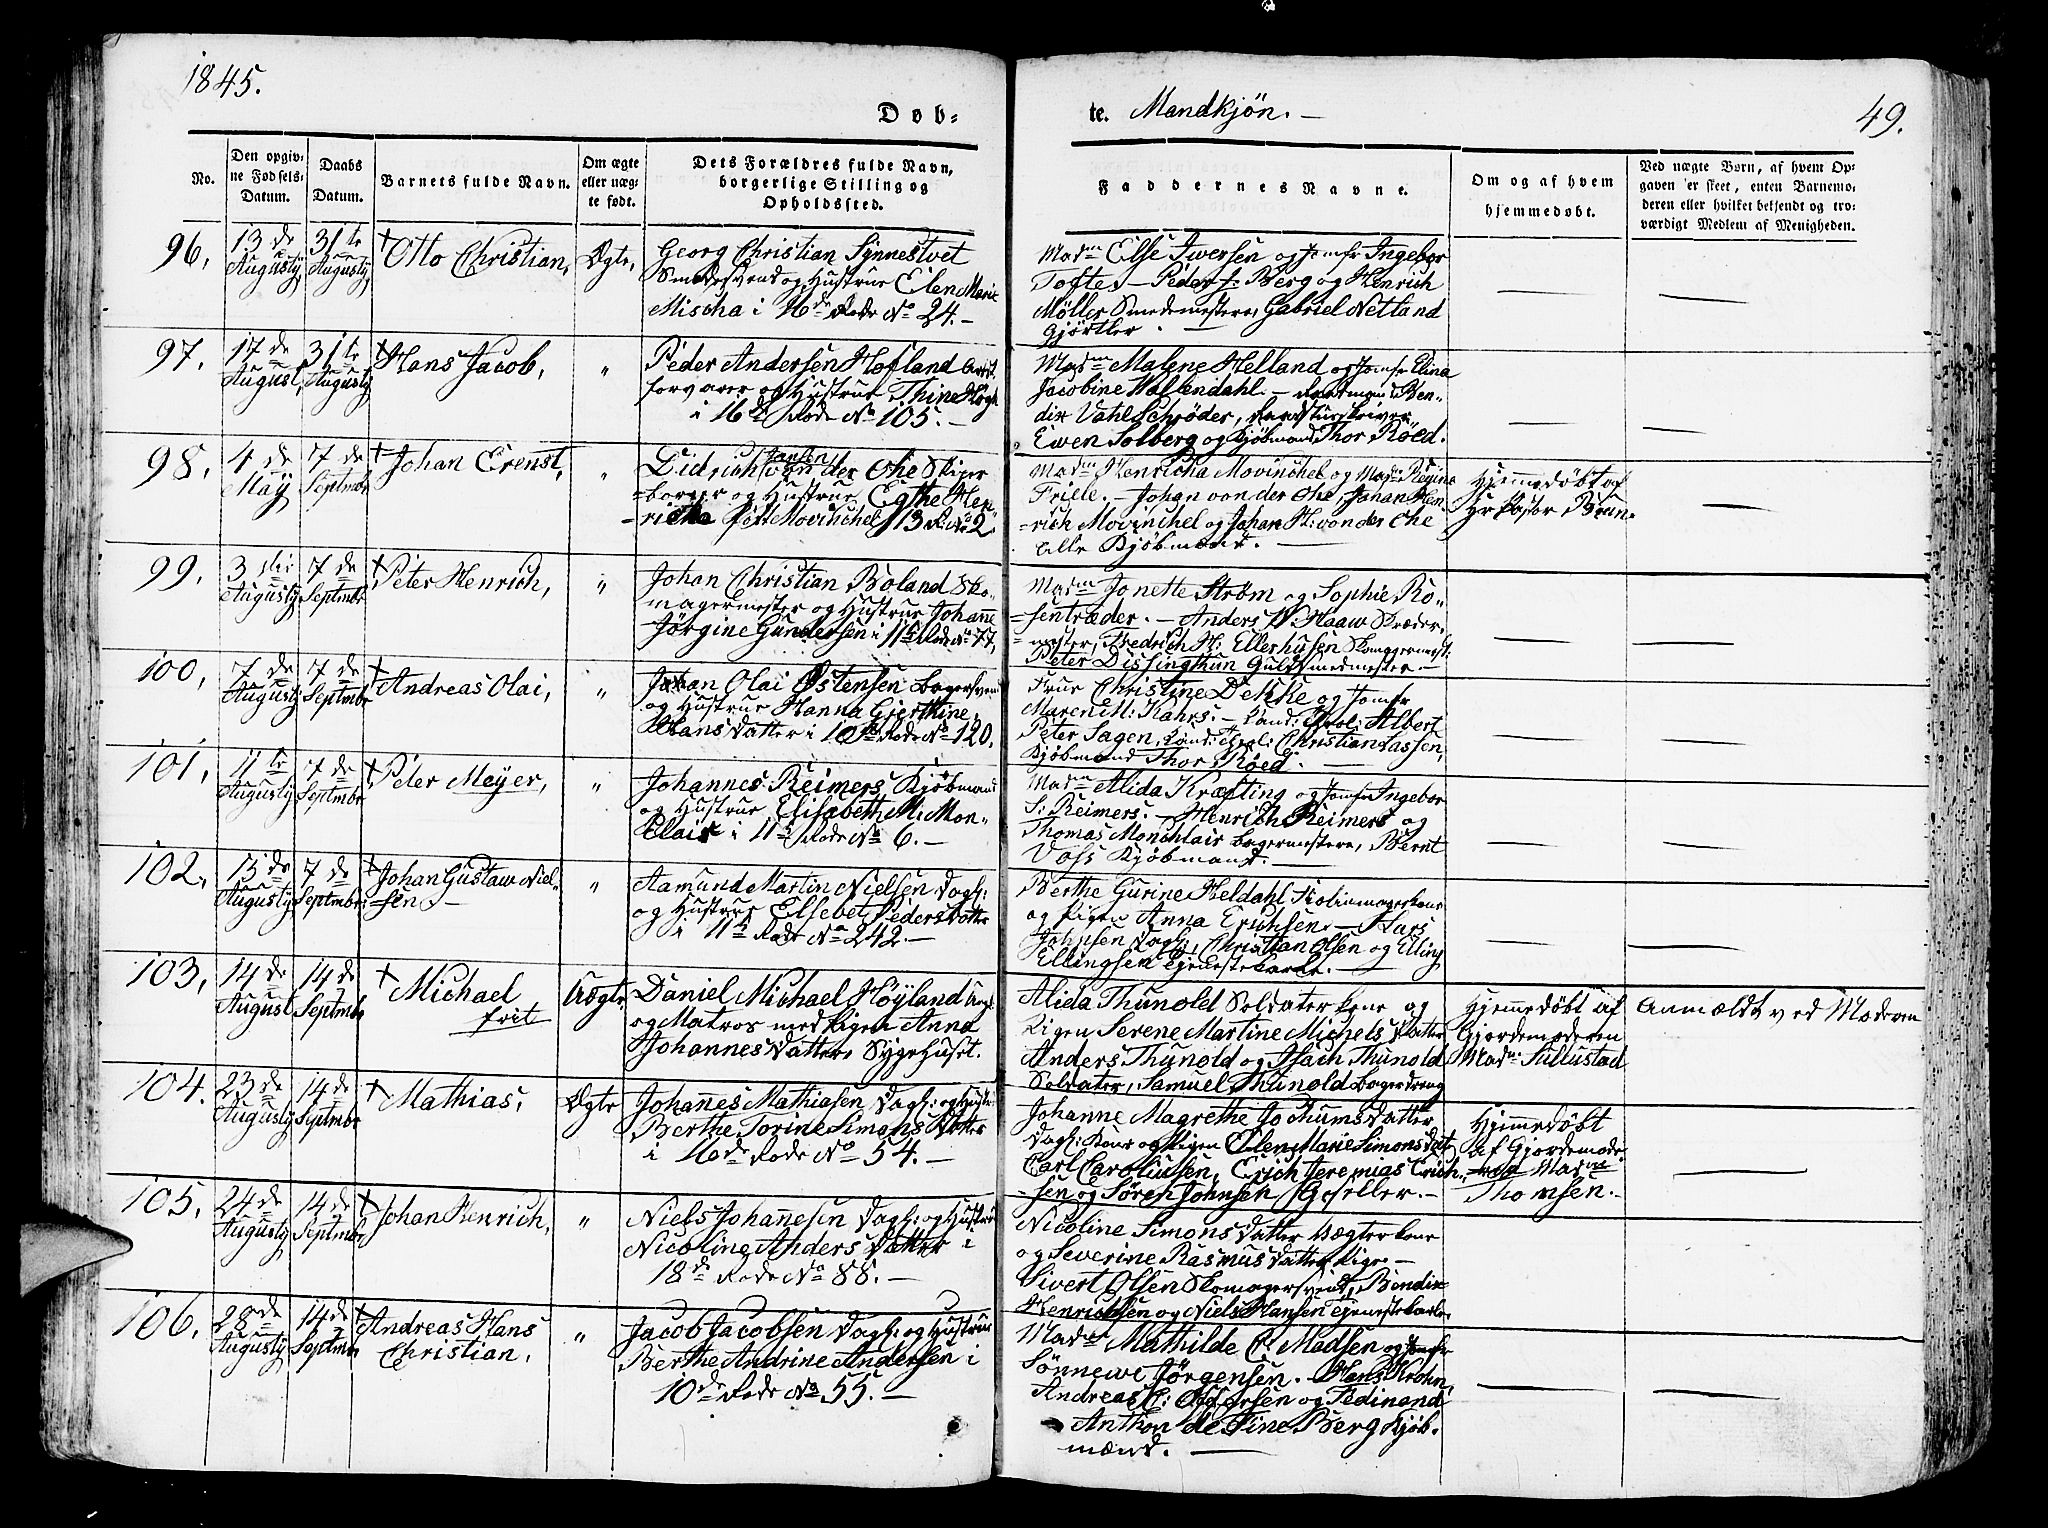 1845.
Døb-
te. Mandkjön. —
49.
No.
Den opgiv-
ne Fødsels-
Datum.
Daabs
Datum.
Barnets fulde Navn.
Om ægte
eller uæg-
te født.
Dets Forældres fulde Navn,
borgerlige Stilling og
Opholdssted.
Faddernes Navne.
Om og af hvem
hjemmedøbt.
Ved uægte Børn, af hvem Op-
gaven er skeet, enten Barnemo-
deren eller hvilket bekjendt og tro-
værdigt Medlem af Menigheden.
96,
13de
Augusty
31te
Augusty
Otto Christian,
Ægte,
Georg Christian Synnestvet
Smedesvend og Hustrue Elen Marie
Mischa i 16de Rode No 24. —
Madm Else Iversen og Jomfr Ingebor
Tofte. — Peder J: Berg og Henrich
Möller Smedemestere, Gabriel Netland
Gjörtler. —
97,
17de
August,
31te
Augusty
Hans Jacob,
"
Peder Andersen Hofland Arrest
forvarer og Hustrue Thine Högh
i 16de Rode No 105. —
Madm Malene Helland og Jomfr Elina
Jacobine Wallendahl. — Raadmand Ben-
dix Vahl Schrøder, Raadstueskriver
Ewen Solberg og Kjøbmand Thor Röed.
98,
4de
May
7de
Septmbr
Johan Erenst,
"
Didrich Jansen von der Ohe Skiper
borger og Hustrue Egthe Hen-
ricke født Movinchel i 13 R: No 2.
Madm Henricha Movinchel og Madm Regina
Friele. — Johan von der Ohe, Johan Hen-
rich Movinchel og Johan H: von der Ohe
alle Kjøbmænd. —
Hjemmedøbt af
Hr Pastor Brun.
99,
3die
Augusty
7de
Septmbr
Peter Henrich,
"
Johan Christian Boland Sko-
magermester og Hustrue Johanne
Jörgine Gundersen i 11te Rode No 77,
Madm Jonette Strøm og Sophie Ro-
sentræder. — Anders W. Haaw Dræder
mester, Fredrich H. Ellerhusen Skomagermest:
Peter Dissingthun Guldsmedmester. —
100,
7de
Augusty
7de
Septmbr
Andreas Olai,
"
Johan Olai Østensen Bagersvend
og Hustrue Hanna Gjerthine
Hans Datter i 10de Rode No 120,
Frue Christine Dekke og Jomfr
Maren M: Kahrs. — Cand: Theol: Albert
Peter Sagen, Cand: Theol: Christian Lassen,
Kjøbmand Thor Röed. —
101,
11te
Augusty
7de
Septmbr
Peter Meyer,
"
Johannes Reimers, Kjøbmand
og Hustrue Elisabeth M: Mon-
Clair i 11te Rode No 6. —
Madm Alida Kræfting og Jomfr Ingebor
S: Reimers. — Henrich Reimers og
Thomas Monchlair Bagermestere, Bernt
Voss Kjøbmand. —
102,
13de
Augusty
7de
Septmbr
Johan Gustaw Niel-
sen. —
"
Aamund Martin Nielsen Dagl:
og Hustrue Elsebet Peders Datter
i 11te Rode No 242. —
Berthe Gurine Heldahl Kone
og Pigen Anna Erichsen. — Lars
Johnsen Dagl:, Christian Olsen og Elling
Ellingsen Tjenestekarle. —
103,
14de
August
14de
Septmbr
Michael
frit
Uægte
Daniel Michael Höyland Ungk:
og Matros med Pigen Anna
Johannes Datter, Sygehuset.
Alida Thunold Soldater kone og
Pigen Serene Martine Michels Datter
Anders Thunold og Isach Thunold
Soldater, Samuel Thunold Bagerdreng
Hjemmedøbt af
Gjordemoderen
Madm: Sullustad
Anmældt ved Moderen
104.
23de
Augusty
14de
Septmbr
Mathias,
Ægte
Johanes Mathiasen Dagl: og Hustr:
Berthe Torine Simons Datter
i 16de Rode No 54. —
Johanne Magrethe Jo Thums Datter
Dagl: Kone og Pigen Ellen Marie Simons Dat
Carl Caroliusen, Erich Jeremias Erich-
sen og Søren Johnsen Geseller. —
Hjemmedøbt
af Gjordemode
Madme
Thomsen. —
105,
24de
Augusty
14de
Septmbr
Johan Henrich,
"
Niels Johanesen Dagl: og Hustrue
Nicoline Anders Datter i
18de Rode No 88. —
Nicoline Simons Datter Vægterkone
og Severine Rasmus Datter Pige. —
Sivert Olsen Skomagersvend, Bendix
Henrichsen og Niels Hansen Tjenestekarle,
106,
28de
Augusty
14de
Septmbr
Andreas Hans
Christian,
"
Jacob Jacobsen Dagl: og Hustrue
Berthe Andrine Andersen i
10de Rode No 55. —
Madm Mathilde C. Madsen og Jomfr
Sönnewe Jörgensen. — Hans Krohn,
Andreas og Ferdinand
Anthon de Fine Berg Kjøb-
mænd. —